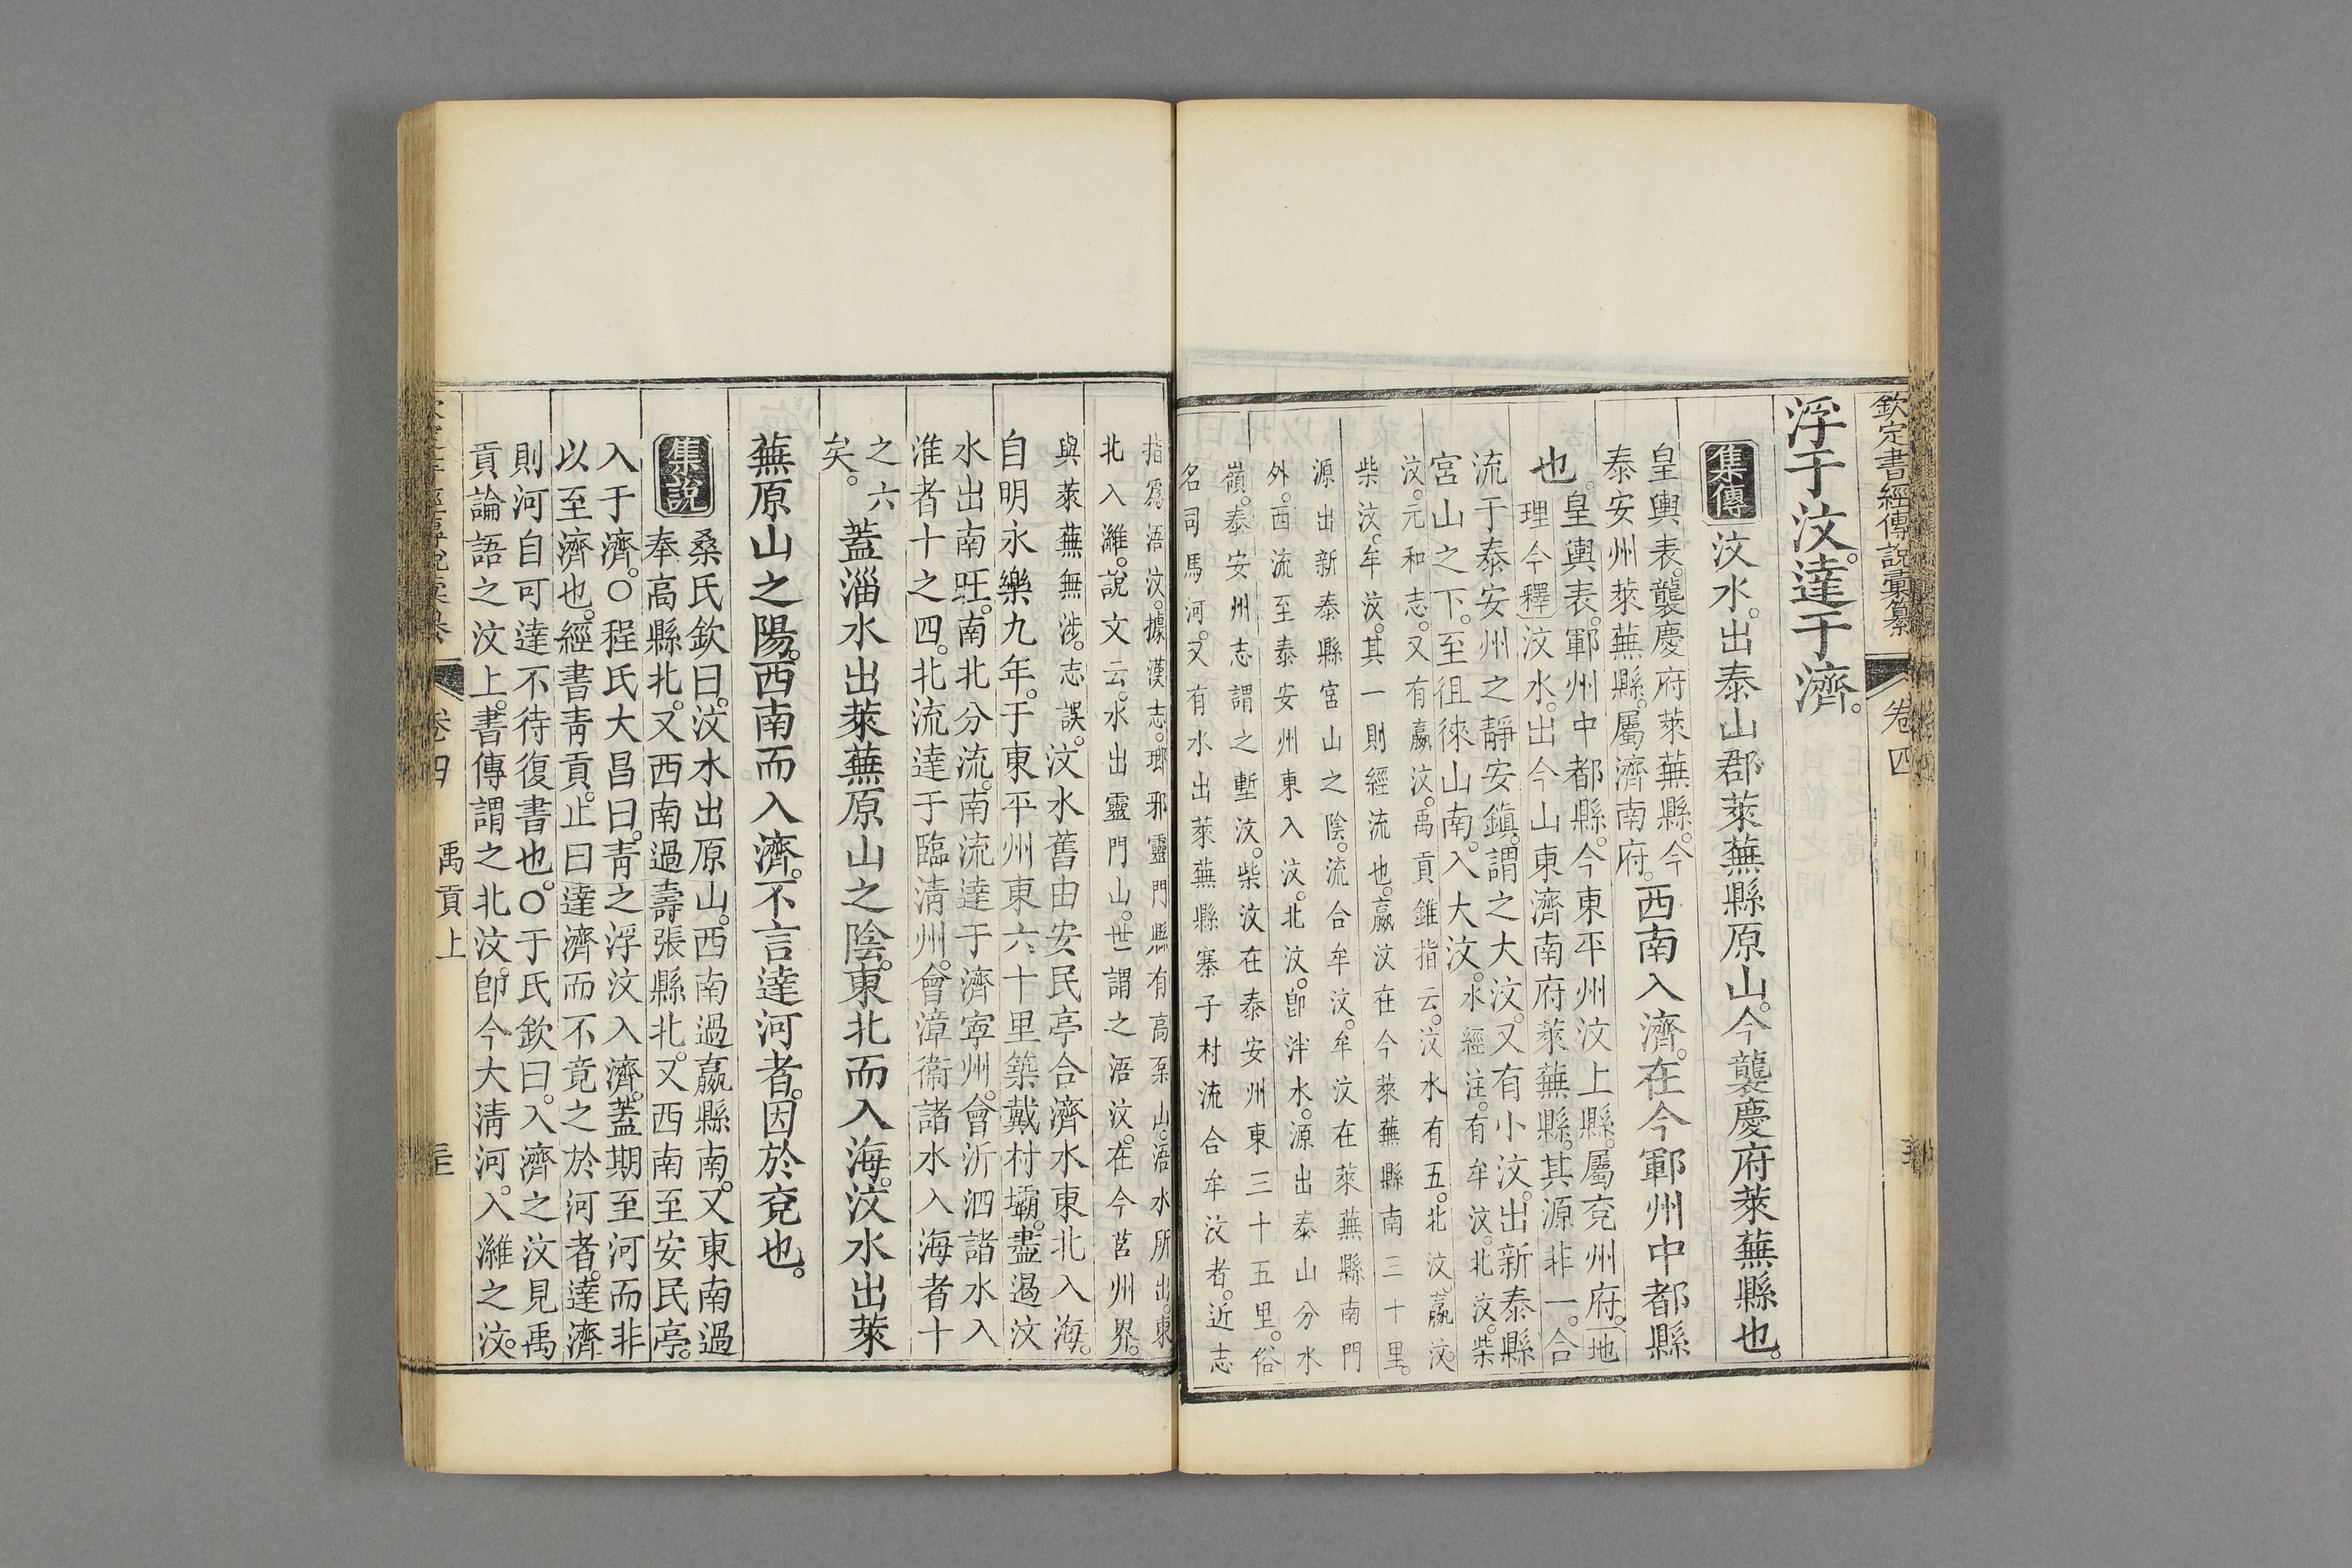 欽定書經傳說彙纂 卷四
浮于汶。達于濟。
集傳 汶水。出泰山郡萊蕪縣原山。今襲慶府萊蕪縣也。
皇輿表。襲慶府萊蕪縣。今
泰安州萊蕪縣。屬濟南府。
西南入濟。在今鄆州中都縣
也。
皇輿表。鄆州中都縣。今東平州汶上縣。屬兗州府。地
理今釋汶水。出今山東濟南府萊蕪縣。其源非一。合
流于泰安州之靜安鎮。謂之大汶。又有小汶。出新泰縣
宮山之下。至徂徠山南。入大汶。水經注。有牟汶。北汶。柴
汶。元和志。又有嬴汶。禹貢錐指云。汶水有五。北汶。嬴汶。
柴汶。牟汶。其一則經流也。嬴汶在今萊蕪縣南三十里。
源出新泰縣宮山之陰。流合牟汶。牟汶在萊蕪縣南門
外。西流至泰安州東入汶。北汶。卽泮水。源出泰山分水
嶺。泰安州志謂之塹汶。柴汶在泰安州東三十五里。俗
名司馬河。又有水出萊蕪縣寨子村流合牟汶者。近志
指爲浯汶。據漢志。瑯邪靈門縣有高柘山。浯水所出。東
北入濰。說文云。水出靈門山。世謂之浯汶。在今莒州界。
與萊蕪無涉。志誤。汶水舊由安民亭合濟水東北入海。
自明永樂九年。于東平州東六十里築戴村壩。盡遏汶
水出南旺。南北分流。南流達于濟寧州。會沂泗諸水入
淮者十之四。北流達于臨淸州。會漳衞諸水入海者十
之六
矣。
蓋淄水出萊蕪原山之陰。東北而入海。汶水出萊
蕪原山之陽。西南而入濟。不言達河者。因於兗也。
集說 桑氏欽曰。汶水出原山。西南過嬴縣南。又東南過
奉高縣北。又西南過壽張縣北。又西南至安民亭。
入于濟。○程氏大昌曰。青之浮汶入濟。蓋期至河而非
以至濟也。經書靑貢。止曰達濟而不竟之於河者。達濟
則河自可達不待復書也。○于氏欽曰。入濟之汶見禹
貢論語之汶上。書傳謂之北汶。卽今大淸河。入濰之汶。
卷四 禹貢上